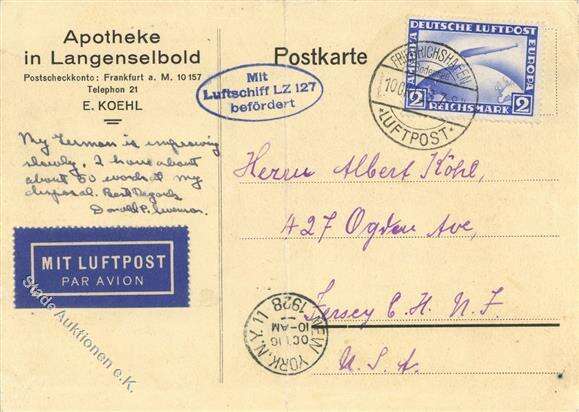 Apotheke
in Langenselbold
Postscheckkonto: Frankfurt a. M. 10157
Telephon 21
E. KOEHL
Postkarte
Mit
Luftschiff LZ 127
befördert
DEUTSCHE LUFTPOST
EUROPA
AMERIKA
2 REICHSMARK 2
FRIEDRICHSHAFEN
LUFTPOST
My German is improving
slowly. I have about
about 50 words at my
disposal. Best Regards
Herrn Albert Köhl,
427 Ogden Ave,
Jersey C. H. N. F.
U. S. A.
MIT LUFTPOST
PAR AVION
NEW YORK, N.Y. 11
OCT 16
10-AM
1928
Stade Auktionen e.K.